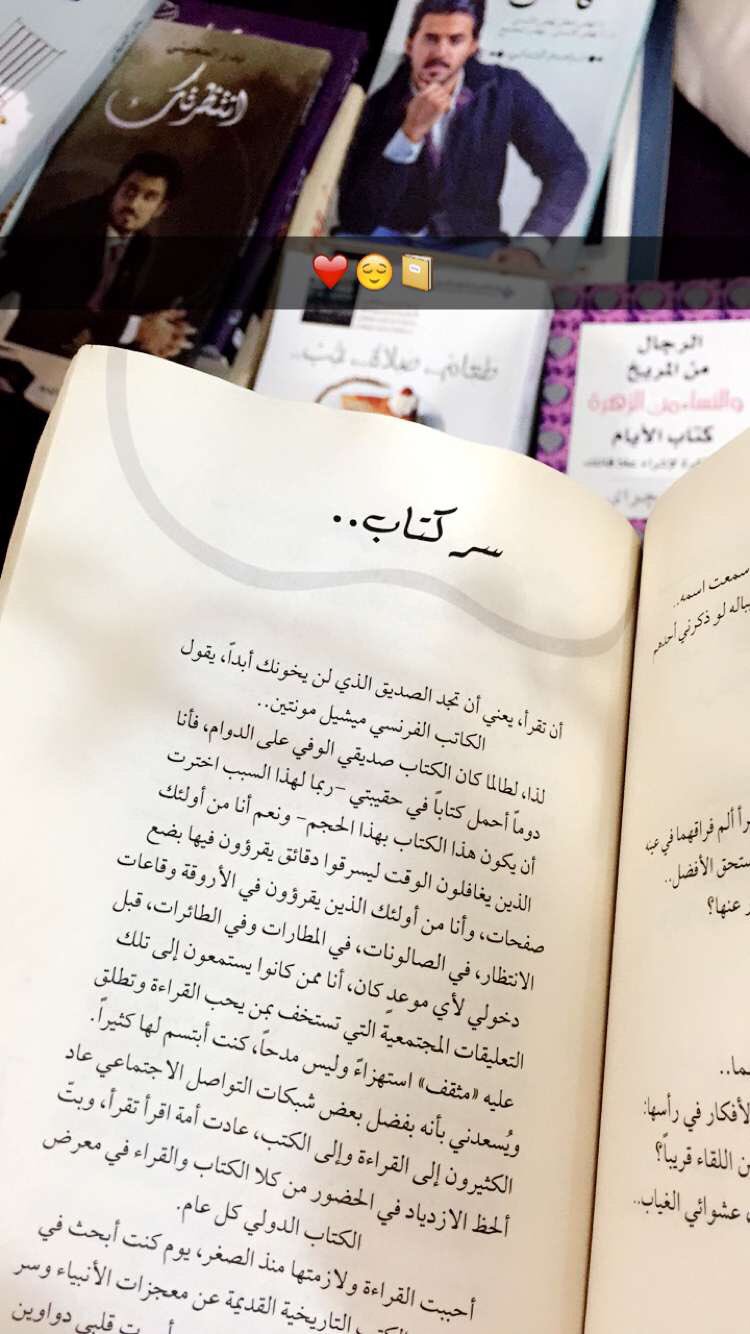 انتظرتك
❤️😌📒
طعام.. صلاة.. حب..
الرجال
من المريخ
والنساء من الزهرة
كتاب الأيام
سر كتاب..
أن تقرأ، يعني أن تجد الصديق الذي لن يخونك أبداً، يقول
الكاتب الفرنسي ميشيل مونتين..
لذا، لطالما كان الكتاب صديقي الوفي على الدوام، فأنا
دوماً أحمل كتاباً في حقيبتي -ربما لهذا السبب اخترت
أن يكون هذا الكتاب بهذا الحجم- ونعم أنا من أولئك
الذين يغافلون الوقت ليسرقوا دقائق يقرؤون فيها بضع
صفحات، وأنا من أولئك الذين يقرؤون في الأروقة وقاعات
الانتظار، في الصالونات، في المطارات وفي الطائرات، قبل
دخولي لأي موعدٍ كان، أنا ممن كانوا يستمعون إلى تلك
التعليقات المجتمعية التي تستخف بمن يحب القراءة وتطلق
عليه «مثقف» استهزاءً وليس مدحاً، كنت أبتسم لها كثيراً.
ويُسعدني بأنه بفضل بعض شبكات التواصل الاجتماعي عاد
الكثيرون إلى القراءة وإلى الكتب، عادت أمة اقرأ تقرأ، وبتّ
ألحظ الازدياد في الحضور من كلا الكتاب والقراء في معرض
الكتاب الدولي كل عام.
أحببت القراءة ولازمتها منذ الصغر، يوم كنت أبحث في
الكتب التاريخية القديمة عن معجزات الأنبياء وسر
قلبي دواوين
سمعت اسمه..
لو ذكرني أحدهم
ألم فراقهما في عينه
ستحق الأفضل..
عنها؟
الأفكار في رأسها:
اللقاء قريباً؟
عشوائي الغياب..